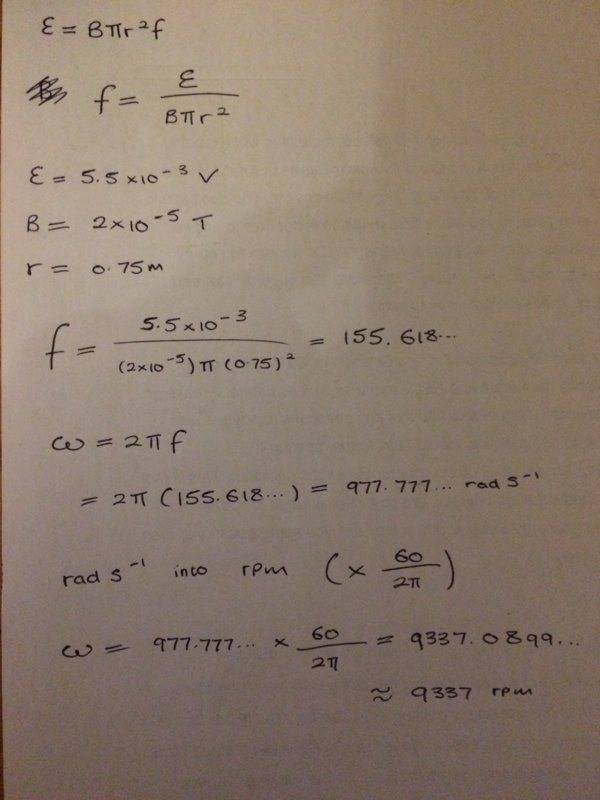 ε = Bπr²f
f = ε / Bπr²
ε = 5.5 × 10⁻³ V
B = 2×10⁻⁵ T
r = 0.75m
f = 5.5×10⁻³ / (2×10⁻⁵)π(0.75)² = 155.618...
ω = 2πf
= 2π(155.618...) = 977.777... rad s⁻¹
rad s⁻¹ into rpm (× 60/2π)
ω = 977.777... × 60/2π = 9337.0899...
≈ 9337 rpm